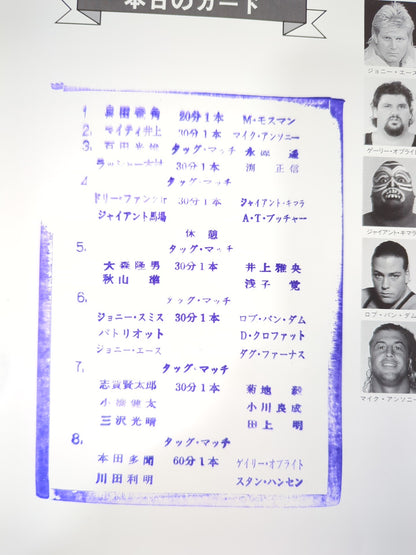 本日のカード
1. 20分1本 M・モスマン
2. マイティ井上 30分1本 マイク・アンソニー
3. 百田光雄 タッグ・マッチ 永源遙
ラッシャー木村 30分1本 渕正信
4. タッグ・マッチ
ドリー・ファンクJr 30分1本 ジャイアント・キマラ
ジャイアント馬場 A・T・ブッチャー
休憩
5. タッグ・マッチ
大森隆男 30分1本 井上雅央
秋山準 浅子覚
6. タッグ・マッチ
ジョニー・スミス 30分1本 ロブ・バン・ダム
パトリオット D・クロファット
ジョニー・エース ダグ・ファーナス
7. タッグ・マッチ
志賀賢太郎 30分1本 菊地毅
小橋健太 小川良成
三沢光晴 田上明
8. タッグ・マッチ
本田多聞 60分1本 ゲイリー・オブライト
川田利明 スタン・ハンセン
ジョニー・エース
ゲーリー・オブライト
ジャイアント・キマラ
ロブ・バン・ダム
マイク・アンソニー